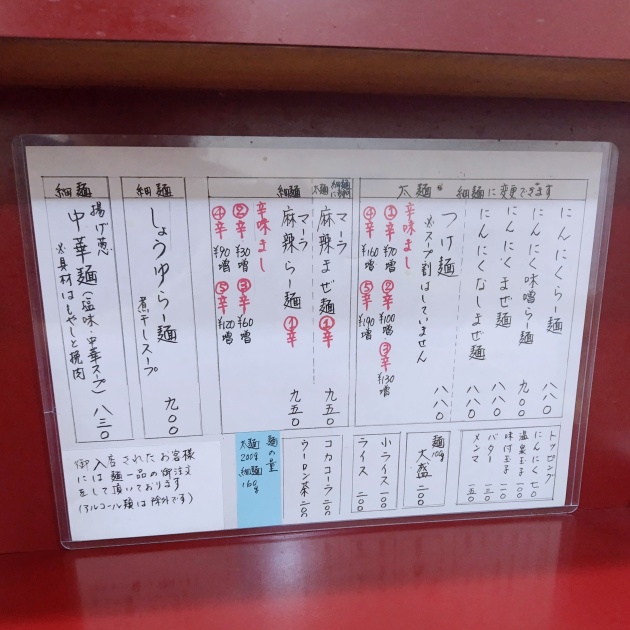 太麺 細麺に変更できます
にんにくらー麺 八八〇
にんにく味噌らー麺 九〇〇
にんにくまぜ麺 八八〇
にんにくなしまぜ麺 八八〇
つけ麺 八八〇
※スープ割はしていません
辛味まし
①辛 ¥70増
②辛 ¥100増
③辛 ¥130増
④辛 ¥160増
⑤辛 ¥190増
太麺
マーラ
麻辣まぜ麺 ①辛 九五〇
細麺
マーラ
麻辣らー麺 ①辛 九五〇
辛味まし
②辛 ¥30増
③辛 ¥60増
④辛 ¥90増
⑤辛 ¥120増
細麺
しょうゆらー麺 九〇〇
煮干しスープ
細麺
揚げ葱
中華麺(塩味・中華スープ) 八三〇
※具材はもやしと挽肉
トッピング
にんにく 七〇
温泉玉子
味付玉子
バター 一三〇
メンマ 一五〇
麺100g
大盛 二〇〇
小ライス 一〇〇
ライス 二〇〇
コカコーラ 二〇〇
ウーロン茶 二〇〇
麺の量
太麺200g
細麺160g
御入店されたお客様
には麺一品の御注文
をして頂いております
(アルコール類は除外です)